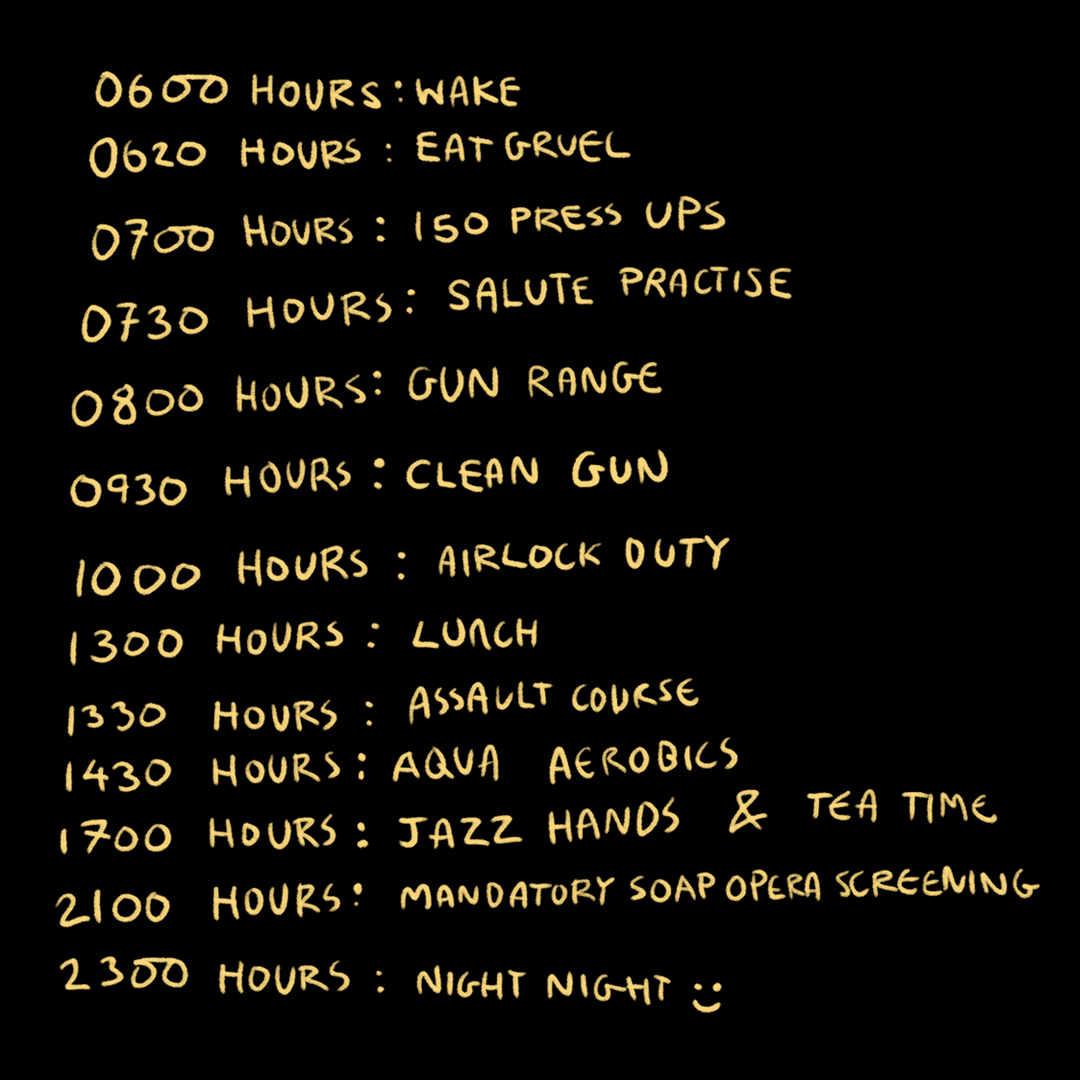 0600 HOURS : WAKE
0620 HOURS : EAT GRUEL
0700 HOURS : 150 PRESS UPS
0730 HOURS : SALUTE PRACTISE
0800 HOURS : GUN RANGE
0930 HOURS : CLEAN GUN
1000 HOURS : AIRLOCK DUTY
1300 HOURS : LUNCH
1330 HOURS : ASSAULT COURSE
1430 HOURS : AQUA AEROBICS
1700 HOURS : JAZZ HANDS & TEA TIME
2100 HOURS : MANDATORY SOAP OPERA SCREENING
2300 HOURS : NIGHT NIGHT :)